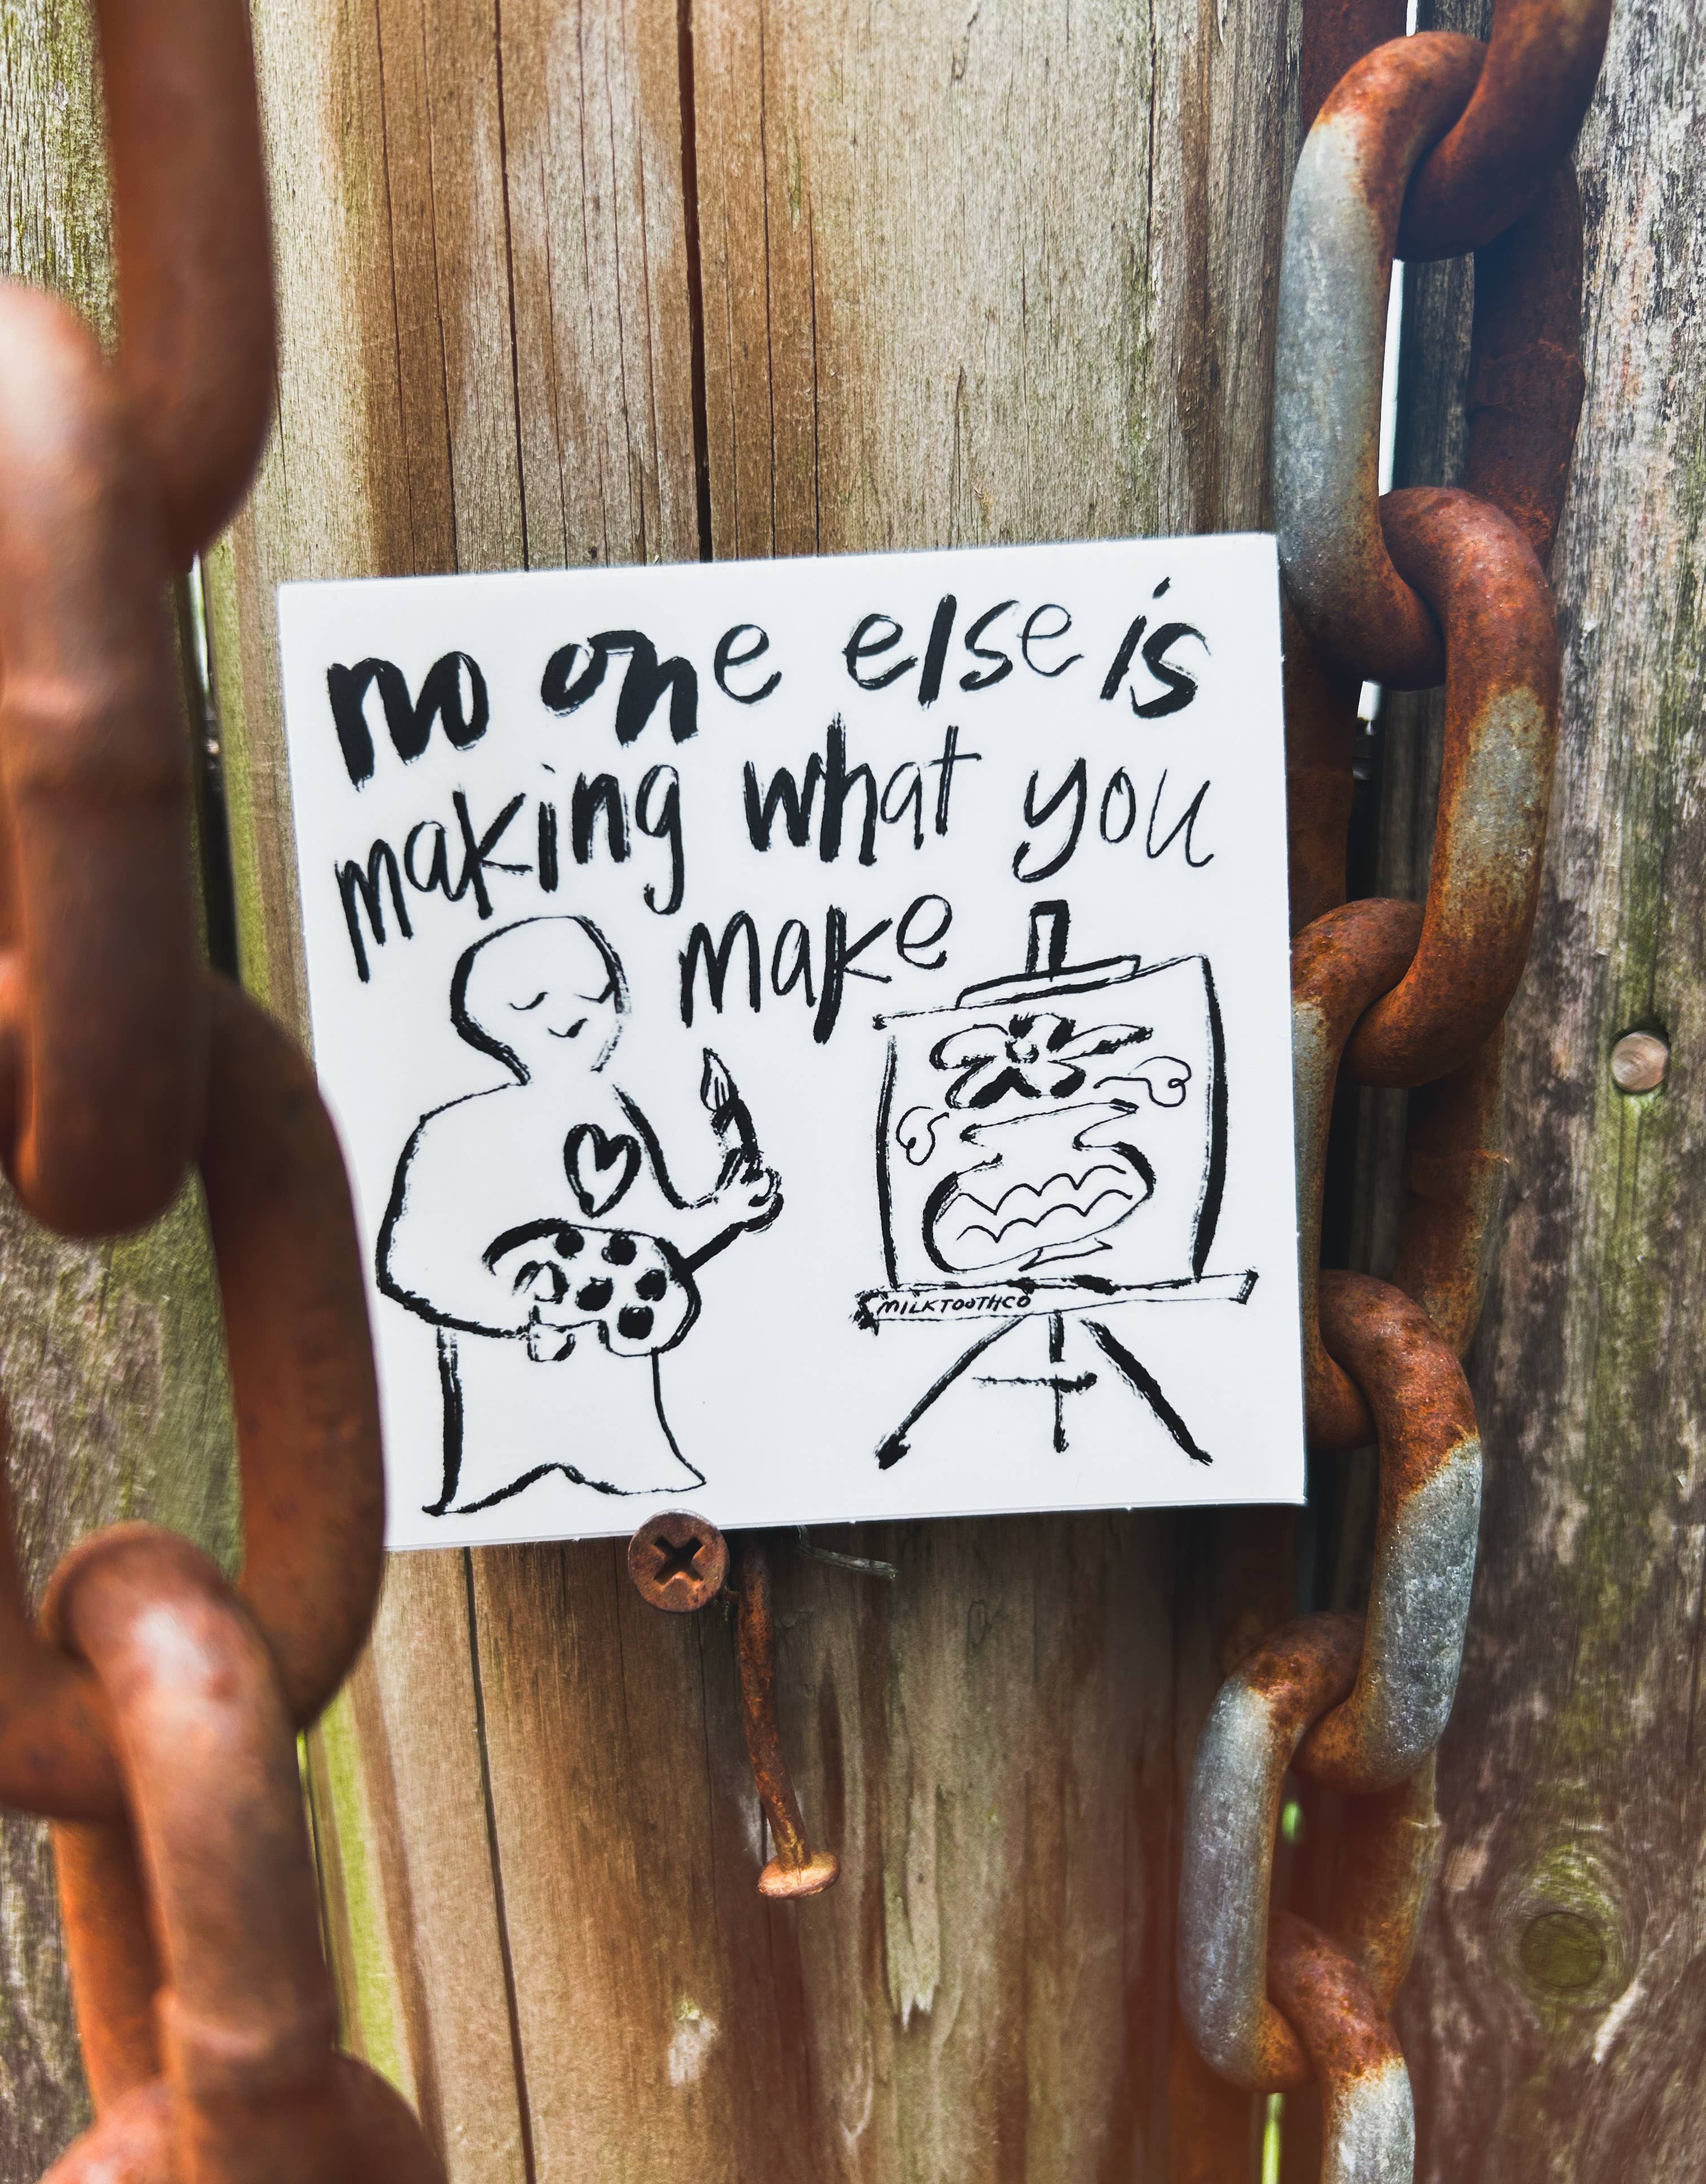 no one else is
making what you
make
MILKTOOTHCO